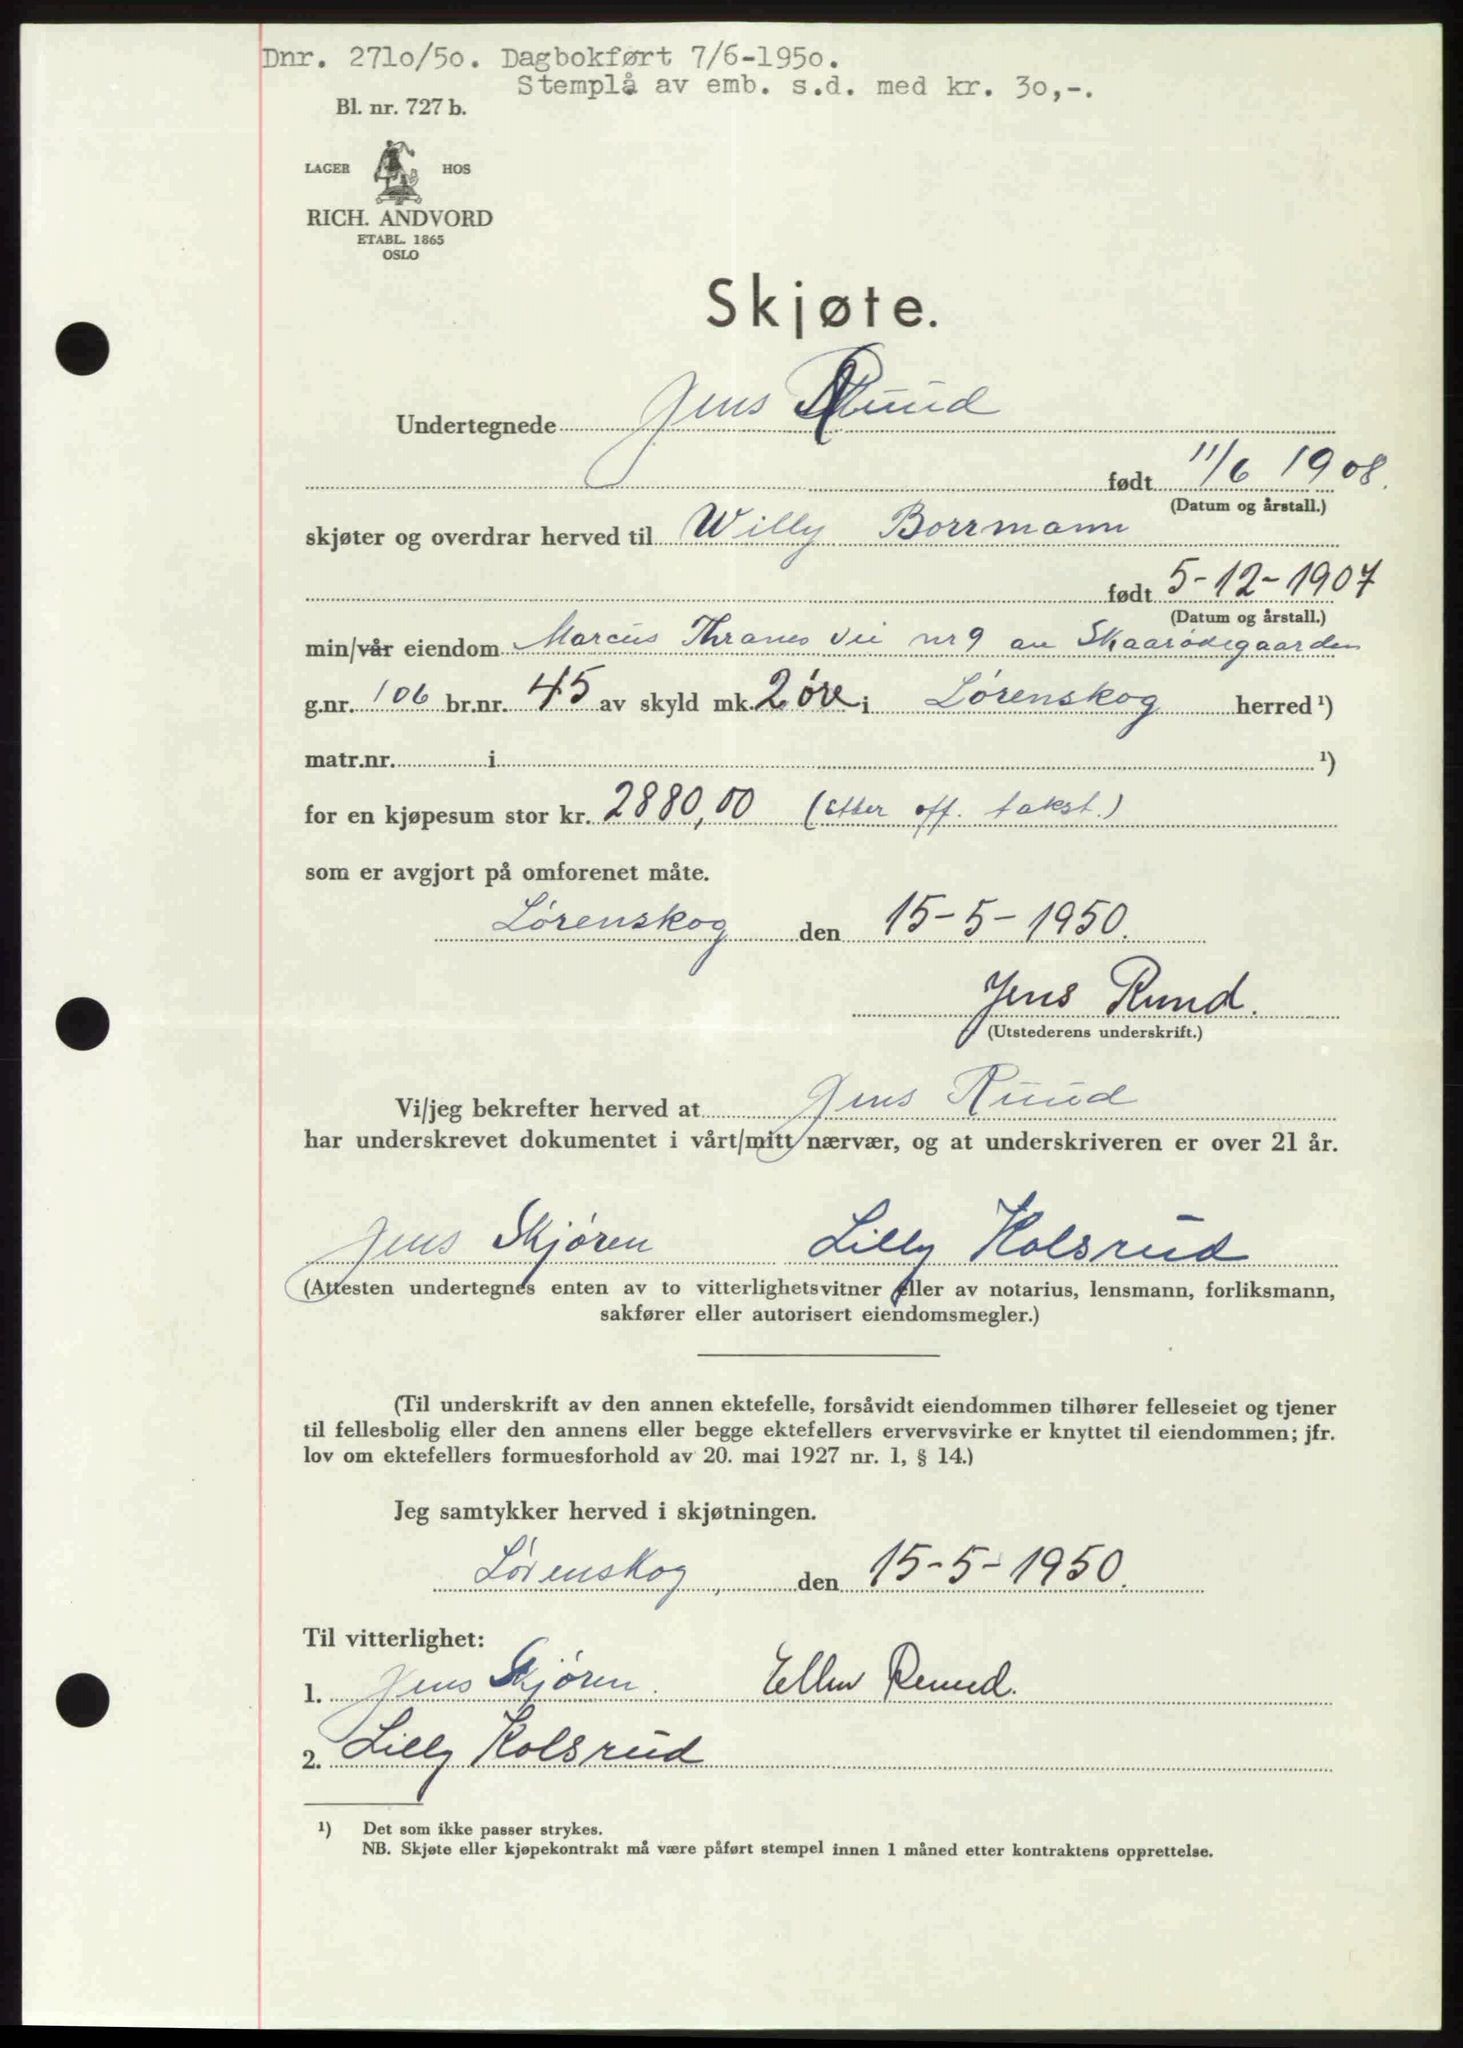 Dnr. 2710/50. Dagbokført 7/6-1950.
Stemplå av emb. s.d. med kr. 30,-.
Bl. nr. 727 b.
LAGER HOS
RICH. ANDVORD
ETABL. 1865
OSLO
Skjøte.
Undertegnede Jens Ruud
født 11/6 1908.
(Datum og årstall.)
skjøter og overdrar herved til Willy Borrmann
født 5-12-1907
(Datum og årstall.)
min/vår eiendom Marcus Thranes vei nr 9 av Skaarødegaarden
g.nr. 106 br.nr. 45 av skyld mk. 2 øre i Lørenskog herred ¹)
matr.nr. i ¹)
for en kjøpesum stor kr. 2880,00 (Etter off. takst.)
som er avgjort på omforenet måte.
Lørenskog den 15-5-1950.
Jens Ruud.
(Utstederens underskrift.)
Vi/jeg bekrefter herved at Jens Ruud
har underskrevet dokumentet i vårt/mitt nærvær, og at underskriveren er over 21 år.
Jens Skjøren Lilly Kolsrud
(Attesten undertegnes enten av to vitterlighetsvitner eller av notarius, lensmann, forliksmann,
sakfører eller autorisert eiendomsmegler.)
(Til underskrift av den annen ektefelle, forsåvidt eiendommen tilhører felleseiet og tjener
til fellesbolig eller den annens eller begge ektefellers ervervsvirke er knyttet til eiendommen; jfr.
lov om ektefellers formuesforhold av 20. mai 1927 nr. 1, § 14.)
Jeg samtykker herved i skjøtningen.
Lørenskog, den 15-5-1950.
Til vitterlighet:
1. Jens Skjøren. Ellen Ruud.
2. Lilly Kolsrud
¹) Det som ikke passer strykes.
NB. Skjøte eller kjøpekontrakt må være påført stempel innen 1 måned etter kontraktens opprettelse.